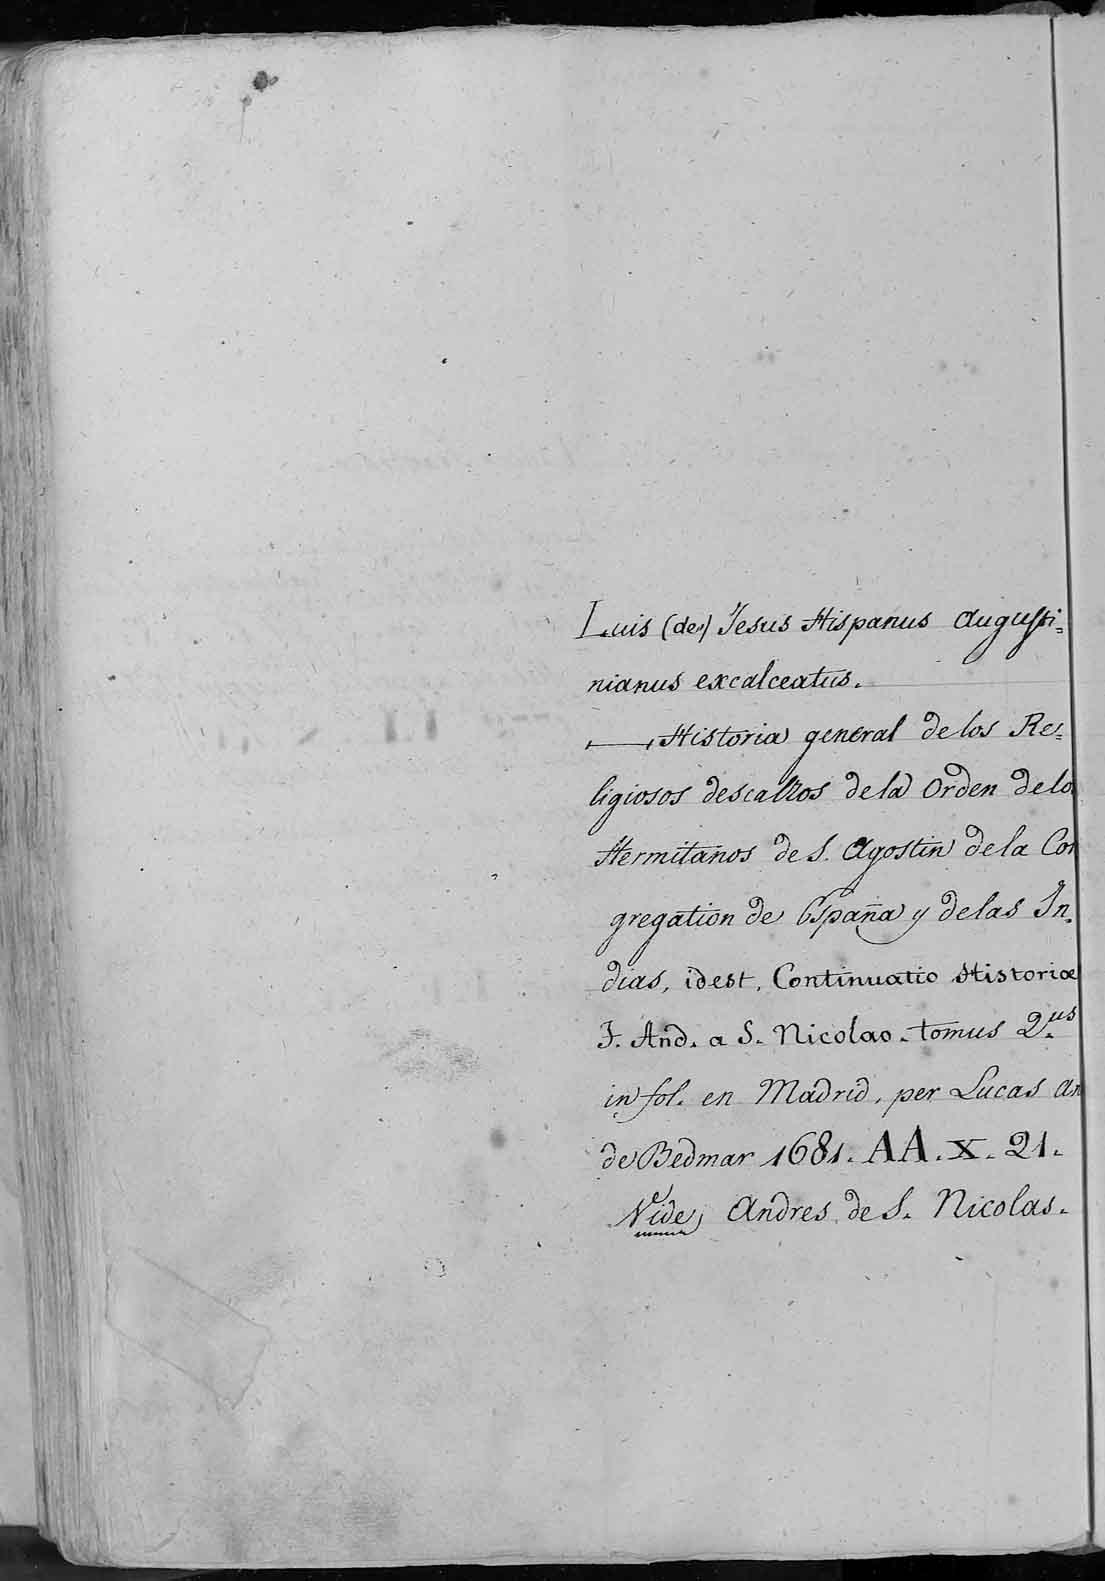 Luis (de) Jesus Hispanus Augusti=
nianus excalceatus.
Historia general de los Re=
ligiosos descalzos de la Orden de lo
Hermitanos de S. Agostin de la Con
gregation de España y de las In=
dias, idest, Continuatio Historiæ
F. And. a S. Nicolao. tomus 2.us
in fol. en Madrid, per Lucas An
de Bedmar 1681. AA. X. 21.
Vide, Andres de S. Nicolas.